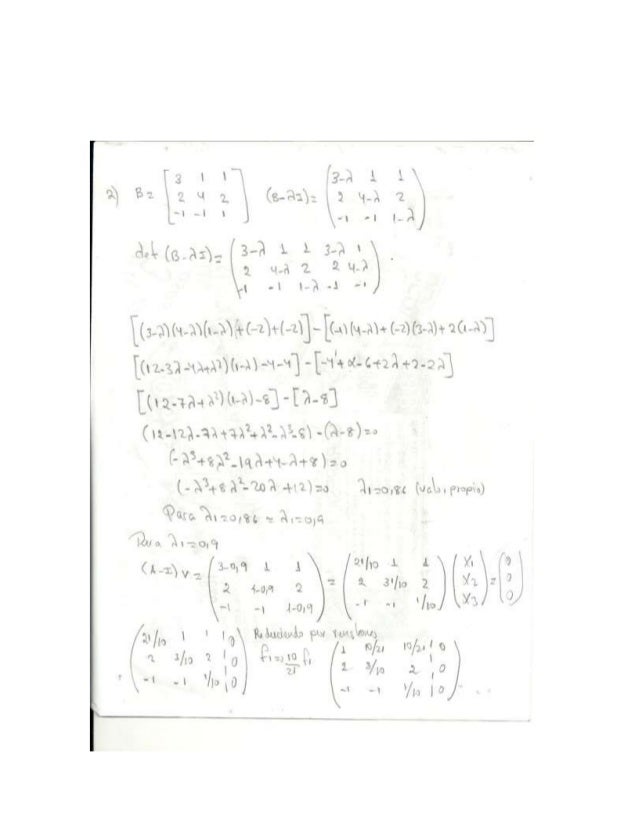 2) B= [3 1 1; 2 4 2; -1 -1 1] (B-λI)= (3-λ 1 1; 2 4-λ 2; -1 -1 1-λ)
det (B-λI)= (3-λ 1 1 3-λ 1; 2 4-λ 2 2 4-λ; -1 -1 1-λ -1 -1)
[(3-λ)(4-λ)(1-λ)+(-2)+(-2)]-[(-1)(4-λ)+(-2)(3-λ)+2(1-λ)]
[(12-3λ-4λ+λ²)(1-λ)-4-4]-[-4+α-6+2λ+2-2λ]
[(12-7λ+λ²)(1-λ)-8]-[λ-8]
(12-12λ-7λ+7λ²+λ²-λ³-8)-(λ-8)=0
(-λ³+8λ²-19λ+4-λ+8)=0
(-λ³+8λ²-20λ+12)=0 λ1=0,86 (valor propio)
Para λ1=0,86 ≈ λ1=0,9
Para λ1=0,9
(A-I)v= (3-0,9 1 1; 2 4-0,9 2; -1 -1 1-0,9) = (21/10 1 1; 2 31/10 2; -1 -1 1/10) (X1; X2; X3) = (0; 0; 0)
(21/10 1 1 | 0; 2 3/10 2 | 0; -1 -1 1/10 | 0) Reduciendo por renglones f1=10/21 f1 (1 10/21 10/21 | 0; 2 3/10 2 | 0; -1 -1 1/10 | 0)